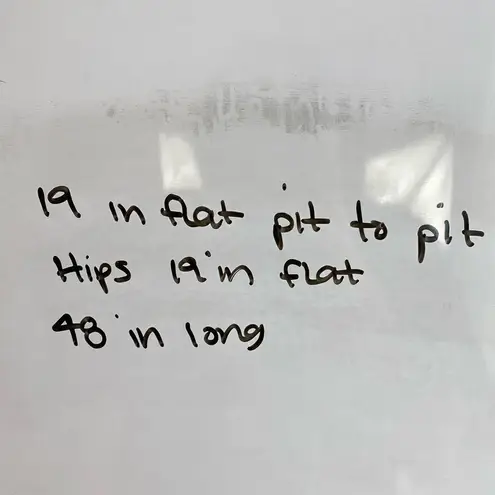 19 in flat pit to pit
Hips 19 in flat
48 in long